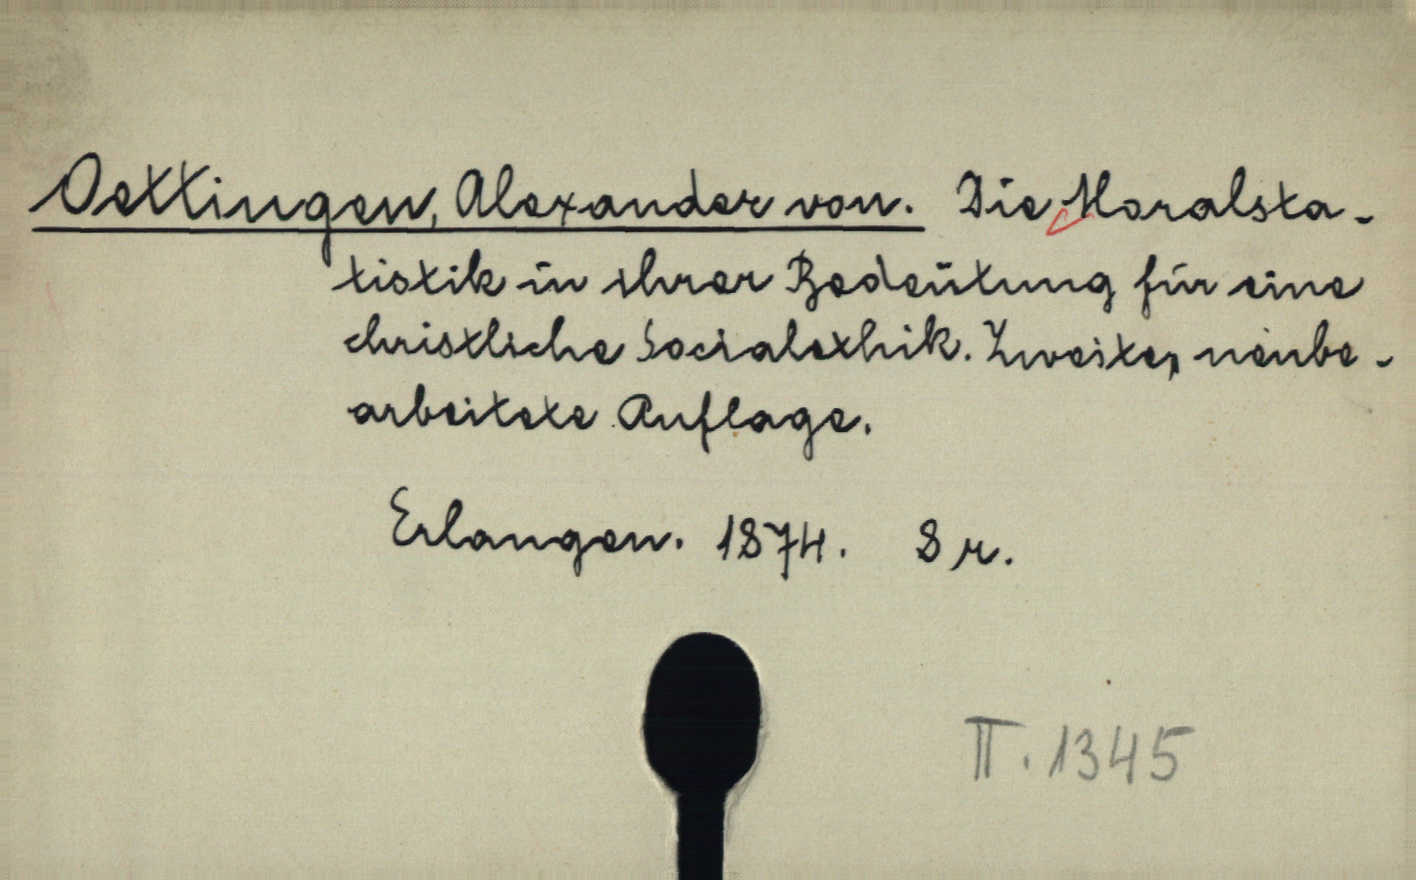 Oettingen, Alexander von. Die Moralsta-
tistik in ihrer Bedeutung für eine
christliche Socialethik. Zweite, neube-
arbeitete Auflage.
Erlangen. 1874. 8 r.
II. 1345